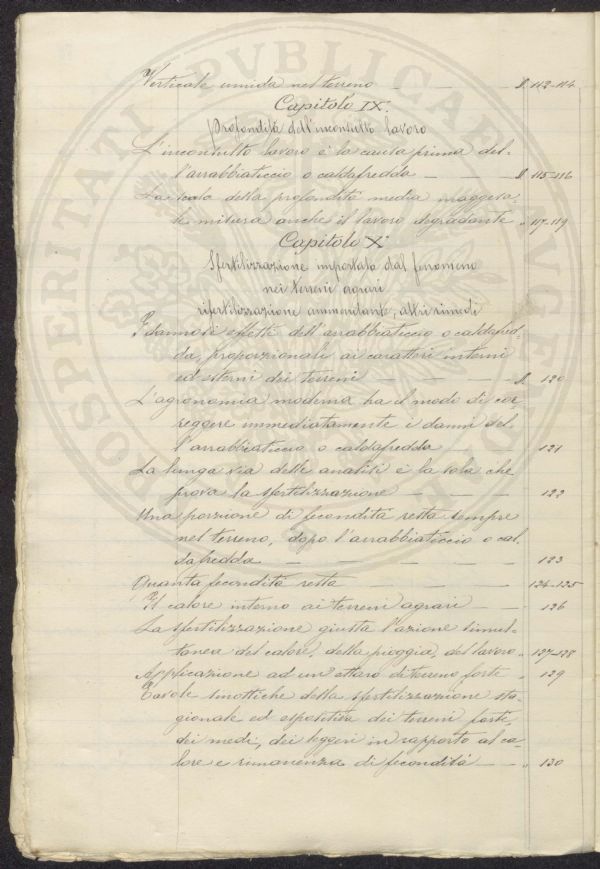 Verticale umida nel terreno — — — „ 112-114
Capitolo IX.
Profondità dell'inconsulto lavoro
L'inconsulto lavoro è la causa prima del-
l'arrabbiaticcio o caldafredda — — — „ 115-116
La scala della profondità media maggese,
misura anche il lavoro degradante „ 117-119
Capitolo X.
Sfertilizzazione importata dal fenomeno
nei terreni agrari
rifertilizzazione ammendante, altri rimedi
I dannosi effetti dell'arrabbiaticcio o caldafred-
da, proporzionali ai caratteri interni
ed esterni dei terreni — — — — „ 120
L'agronomia moderna ha il modo di cor-
reggere immediatamente i danni del-
l'arrabbiaticcio o caldafredda — — „ 121
La lunga via delle analisi è la sola che
prova la sfertilizzazione — — — „ 122
Una porzione di fecondità resta sempre
nel terreno, dopo l'arrabbiaticcio o cal-
dafredda — — — — — „ 123
Quanta fecondità resta — — — — „ 124-125
Il calore interno ai terreni agrari — — „ 126
La sfertilizzazione giusta l'azione simul-
tanea del calore, della pioggia, del lavoro „ 127-128
Applicazione ad un' ettaro di terreno forte „ 129
Tavole sinottiche della sfertilizzazione sta-
gionale ed espositiva dei terreni forti,
dei medi, dei leggeri in rapporto al ca-
lore e rimanenza di fecondità — — „ 130
PROSPERITATI PVBLICAE AVGENDAE